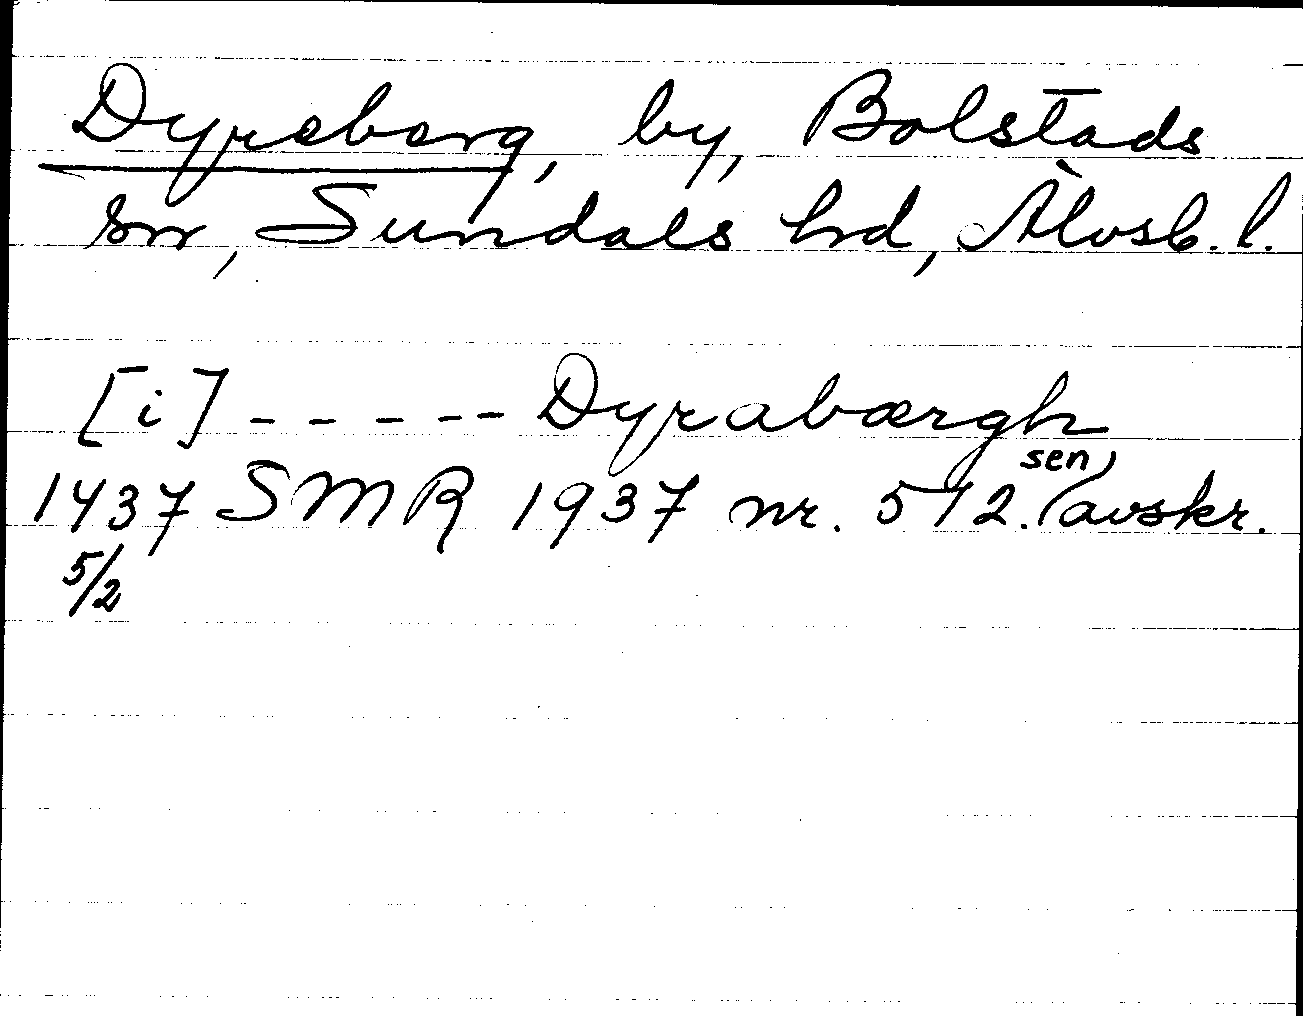 Dyreberg, by, Bolstads
sn, Sundals hd, Älvsb. l.
[i] - - - - - Dyrabærgh
1437 SMR 1937 nr. 572. (sen) avskr.
5/2